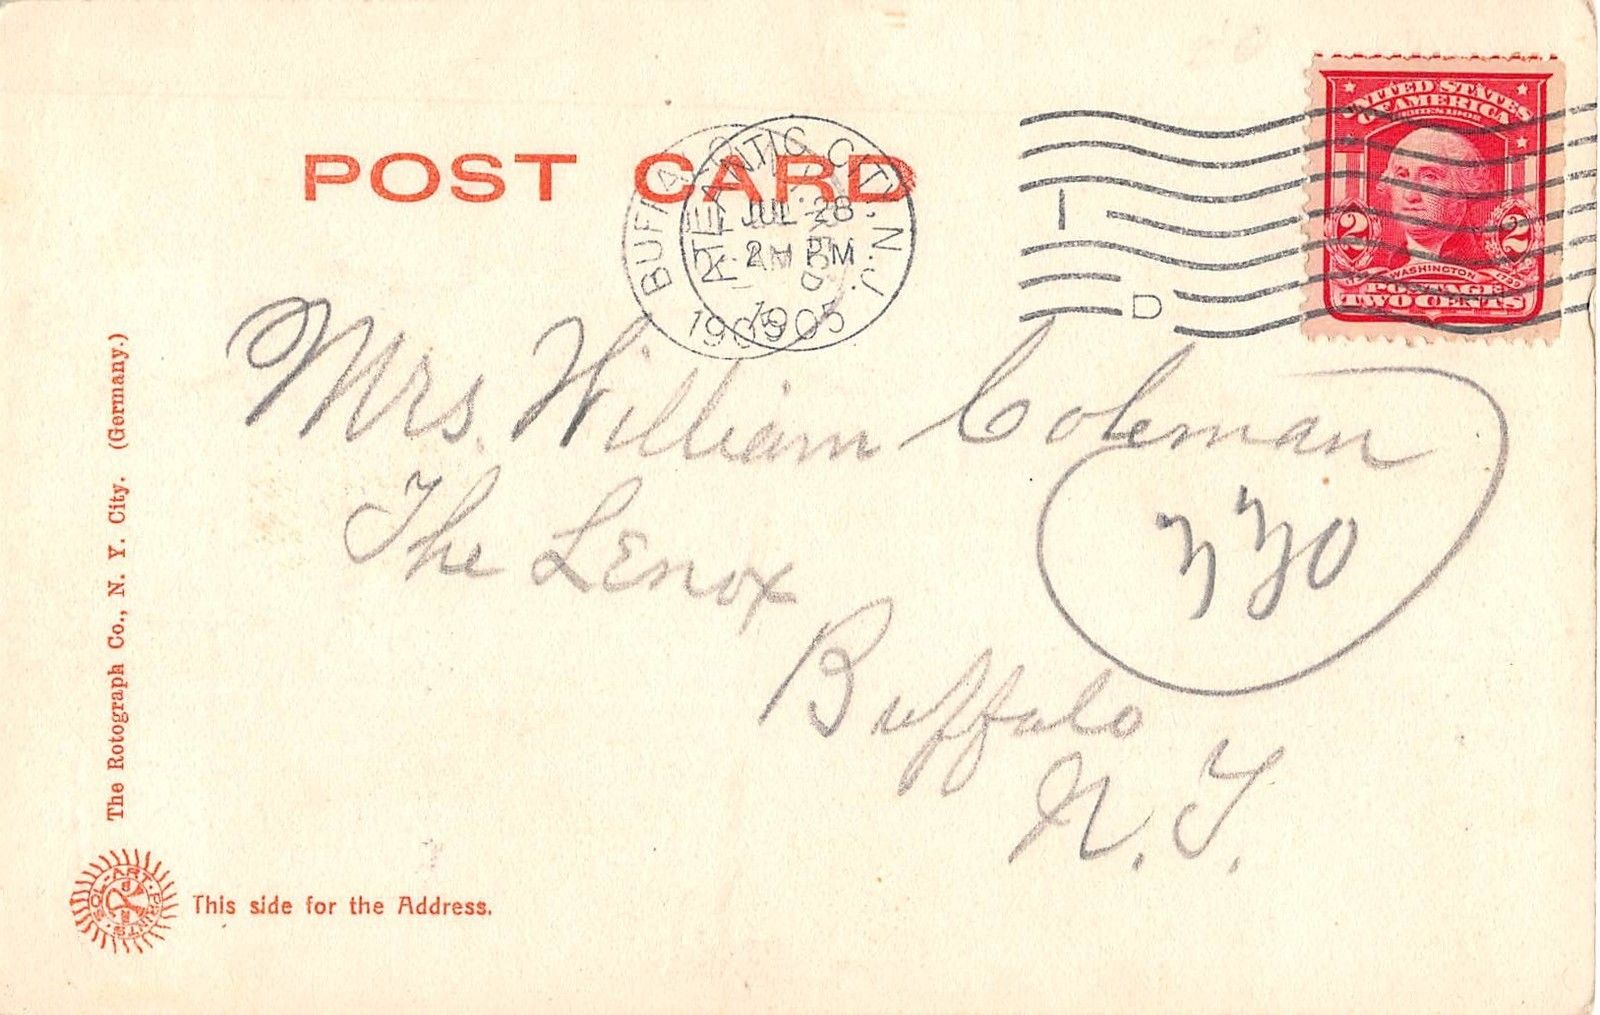 POST CARD
ATLANTIC CITY. N.J.
JUL 28
2 PM
1905
BUFFALO
1905
1
D
UNITED STATES
OF AMERICA
SERIES 1902
2 2
WASHINGTON
POSTAGE
TWO CENTS
Mrs. William Coleman
The Lenox
Buffalo
N. Y.
The Rotograph Co., N. Y. City. (Germany.)
SOL-ART-PRINTS
This side for the Address.